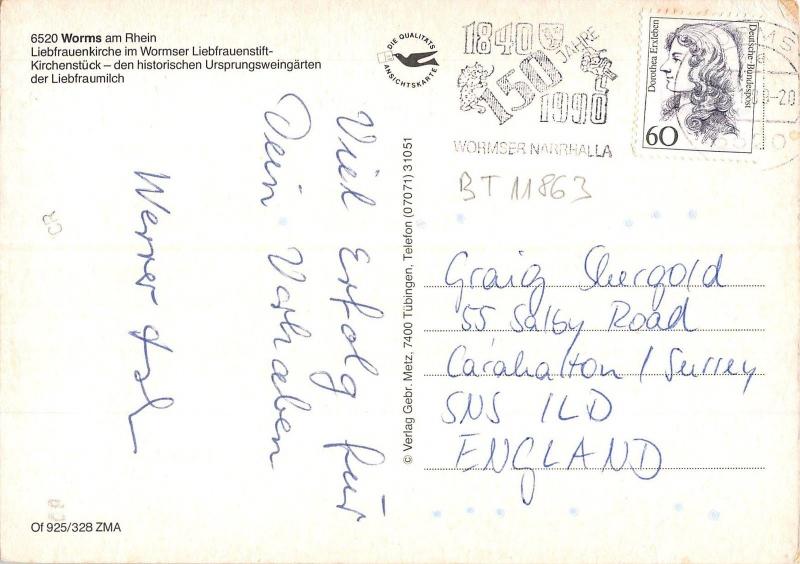 6520 Worms am Rhein
Liebfrauenkirche im Wormser Liebfrauenstift-
Kirchenstück – den historischen Ursprungsweingärten
der Liebfraumilch
DIE QUALITÄTS
ANSICHTSKARTE
1840
150 JAHRE
1990
WORMSER NARRHALLA
Dorothea Erxleben
Deutsche Bundespost
60
BT 11863
Viel Erfolg für
Dein Vorhaben
Werner
CR
© Verlag Gebr. Metz, 7400 Tübingen, Telefon (07071) 31051
Graig Shergold
55 Salby Road
Carahalton / Surrey
SNS 1LD
ENGLAND
Of 925/328 ZMA